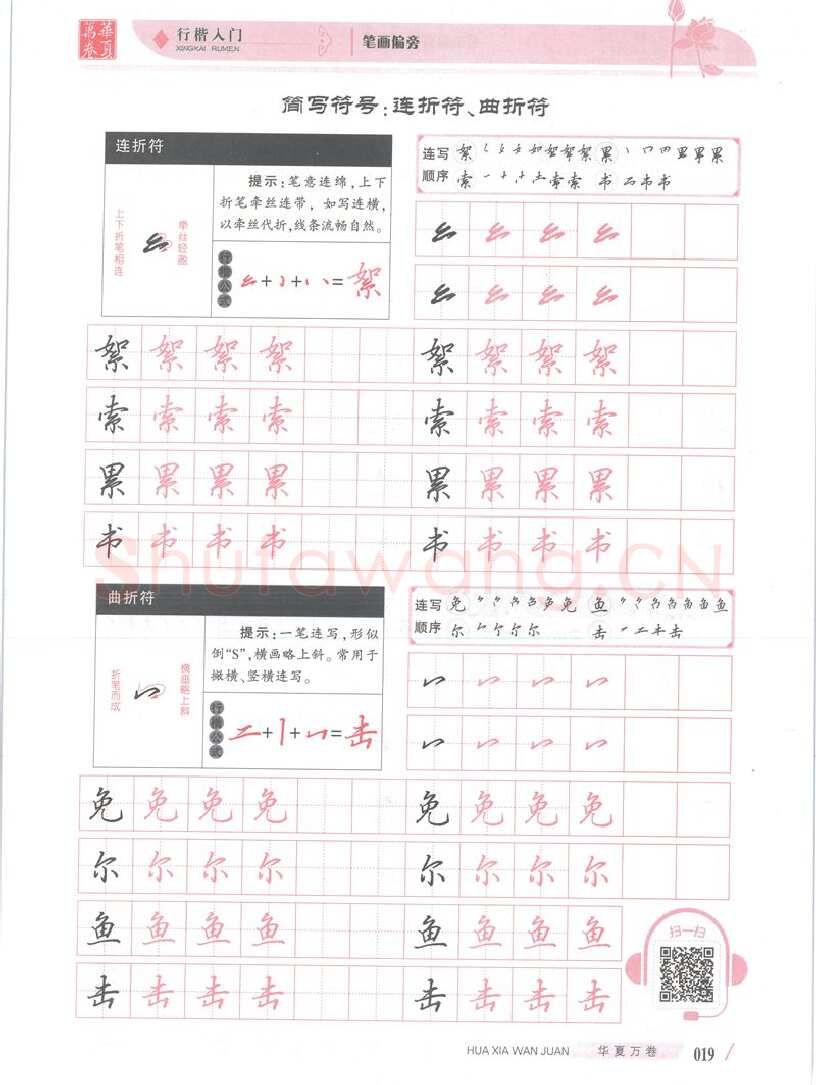 華夏萬卷
行楷入门
XINGKAI RUMEN
笔画偏旁
简写符号:连折符、曲折符
连折符
上下折笔相连
牵丝轻盈
提示:笔意连绵,上下
折笔牵丝连带,如写连横,
以牵丝代折,线条流畅自然。
行楷公式
=絮
连写顺序
絮 絮 累 累
索 索 书 书
絮 絮 絮 絮 絮 絮 絮 絮
索 索 索 索 索 索 索 索
累 累 累 累 累 累 累 累
书 书 书 书 书 书 书 书
Shufawang.CN
曲折符
折笔而成
横画略上斜
提示:一笔连写,形似
倒“S”,横画略上斜。常用于
撇横、竖横连写。
行楷公式
=击
连写顺序
免 免 鱼 鱼
尔 尔 击 击
免 免 免 免 免 免 免 免
尔 尔 尔 尔 尔 尔 尔 尔
鱼 鱼 鱼 鱼 鱼 鱼 鱼 鱼
击 击 击 击 击 击 击 击
扫一扫
HUA XIA WAN JUAN 华夏万卷 019 /